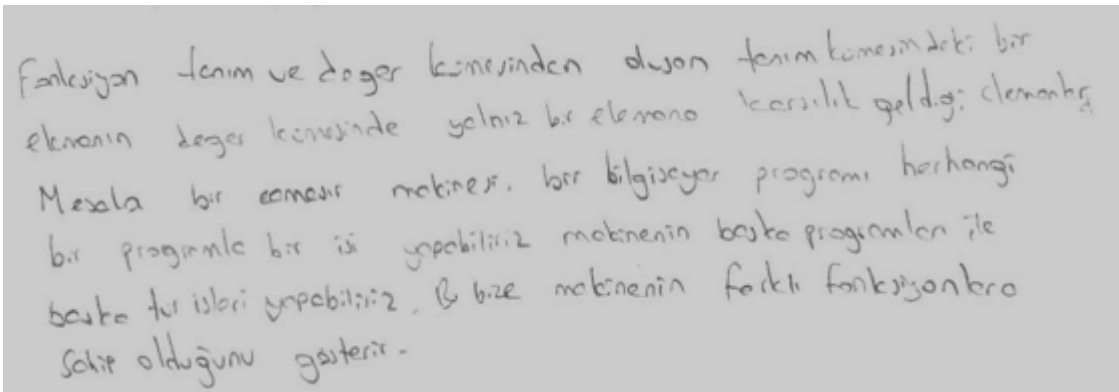 Fonksiyon tanım ve değer kümesinden oluşan tanım kümesindeki bir
elemanın değer kümesinde yalnız bir elemana karşılık geldiği elemanlar
Mesala bir camaşır makinesi. bir bilgisayar programı herhangi
bir programla bir isi yapabiliriz makinenin başka programları ile
başka tür isleri yapabiliriz. Bu bize makinenin farklı fonksiyonlara
Sahip olduğunu gösterir.